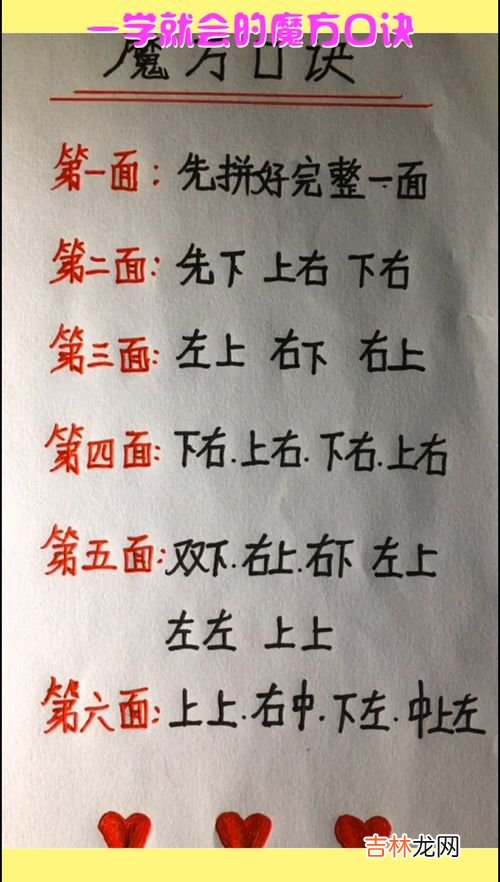 一学就会的魔方口诀
魔方口诀
第一面：先拼好完整一面
第二面：先下 上右 下右
第三面：左上 右下 右上
第四面：下右.上右.下右.上右
第五面：双下.右上.右下 左上
左左 上上
第六面：上上.右中.下左.中上左
吉林龙网